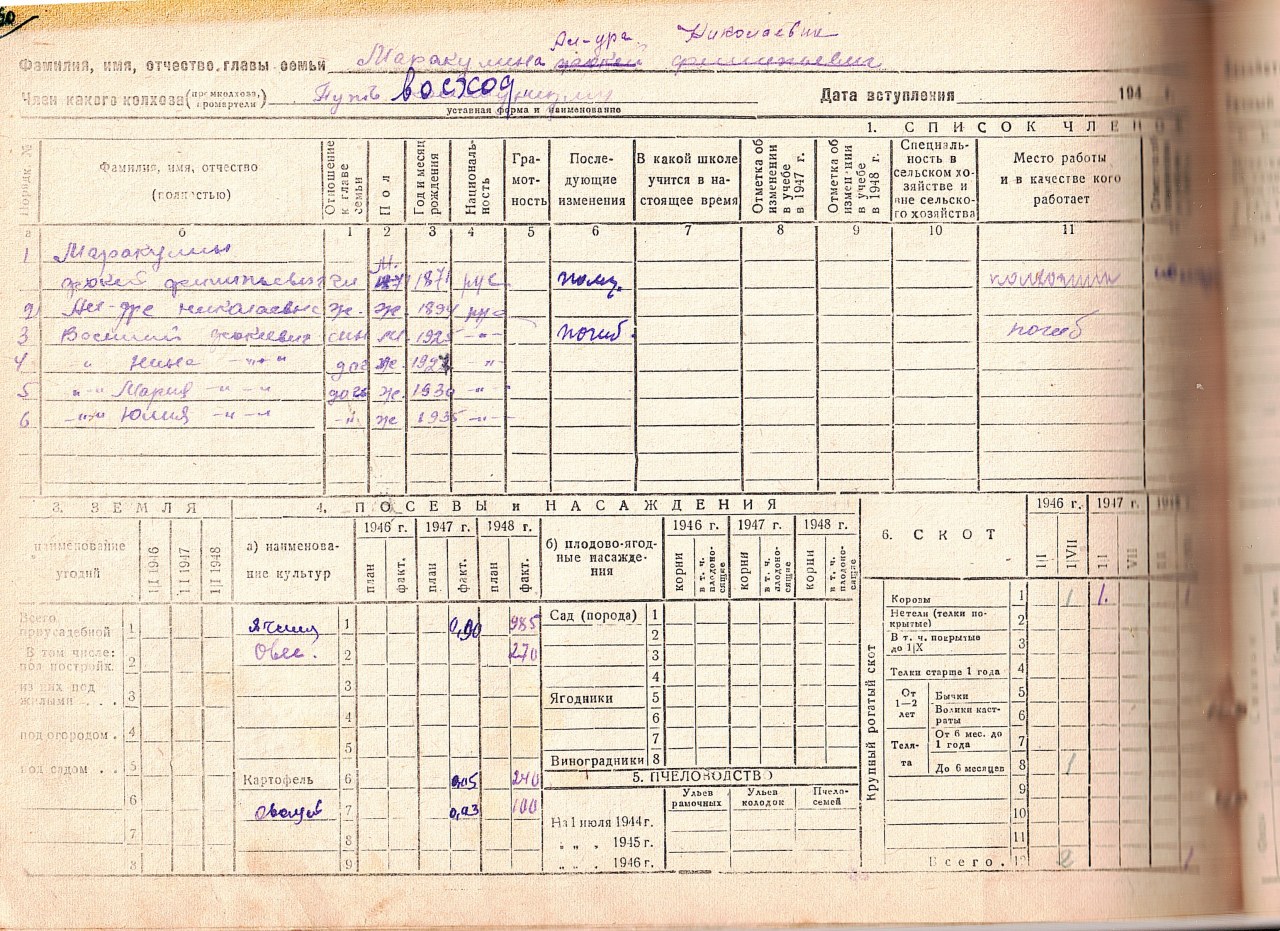 Фамилия, имя, отчество, главы семьи Маракулина Николаевна
Член какого колхоза (промколхоза, промартели) Путь восход
уставная форма и наименование
Дата вступления 194 г.
1. СПИСОК ЧЛЕНО
Порядк. №
Фамилия, имя, отчество (полностью)
Отношение к главе семьи
Пол
Год и месяц рождения
Националь-ность
Гра-мот-ность
После-дующие изменения
В какой школе учится в на-стоящее время
Отметка об изменении в учебе в 1947 г.
Отметка об измен-нии в учебе в 1948 г.
Специаль-ность в сельском хо-зяйстве и вне сельско-го хозяйства
Место работы и в качестве кого работает
б 1 2 3 4 5 6 7 8 9 10 11
1 Маракулин
м. 1871 рус
2 Николаевна ж. ж. 1894 рус
3 Василий сын м. 1925 -"- погиб. погиб
4 " Нина -"- " доч ж. 1927 -"-
5 -"- Мария -"- доч ж. 1930 -"-
6 -"- Юлия -"- -"- ж 1935 -"-
3. ЗЕМЛЯ
наименование угодий
1|I 1946
1|I 1947
1|I 1948
Всего приусадебной 1
В том числе: под постройк. 2
из них под жилыми . . . 3
под огородом . 4
под садом . . 5
6
7
8
4. ПОСЕВЫ и НАСАЖДЕНИЯ
а) наименова-ние культур
1946 г. 1947 г. 1948 г.
план факт. план факт. план факт.
Ячмень 1 0,90 985
Овес. 2 270
3
4
5
Картофель 6 0,05 240
Овощей 7 0,03 100
8
9
б) плодово-ягод-ные насажде-ния
1946 г. 1947 г. 1948 г.
корни в т. ч. плодоно-сящие корни в т. ч. плодоно-сящие корни в т. ч. плодоно-сящие
Сад (порода) 1
2
3
4
Ягодники 5
6
7
Виноградники 8
5. ПЧЕЛОВОДСТВО
Ульев рамочных Ульев колодок Пчело-семей
На 1 июля 1944 г.
„ „ „ 1945 г.
„ „ „ 1946 г.
6. СКОТ
1946 г. 1947 г.
1|I 1|VII 1|I VII
Крупный рогатый скот
Коровы 1 1 1.
Нетели (телки по-крытые) 2
В т. ч. покрытые до 1|X 3
Телки старше 1 года 4
От 1—2 лет
Бычки 5
Волики каст-раты 6
Теля-та
От 6 мес. до 1 года 7
До 6 месяцев 8 1
9
10
11
Всего. 12 2 1